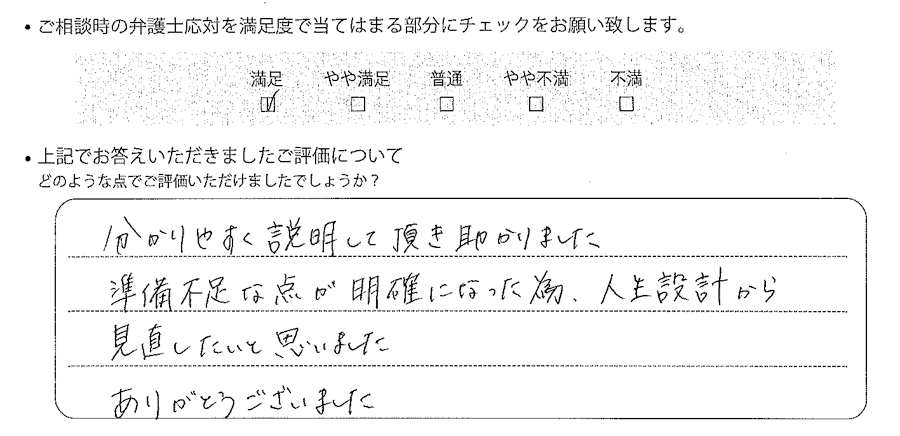 ・ご相談時の弁護士応対を満足度で当てはまる部分にチェックをお願い致します。
満足 やや満足 普通 やや不満 不満
☑ □ □ □ □
・上記でお答えいただきましたご評価について
どのような点でご評価いただけましたでしょうか？
分かりやすく説明して頂き助かりました
準備不足な点が明確になった為、人生設計から
見直したいと思いました
ありがとうございました